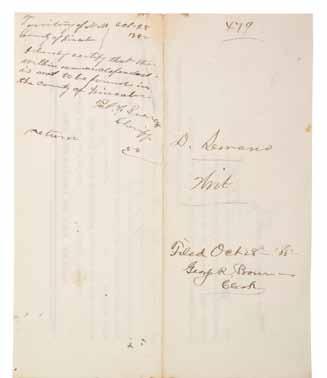 Territory of N.M. Oct 28
County of Lincoln 188
I hereby certify that the
within named defendant
is not to be found in
the county of Lincoln
Pat F. Garrett
Sheriff
return
479
D.
Writ
Filed Oct 28
Geo. R. Bowman
Clerk